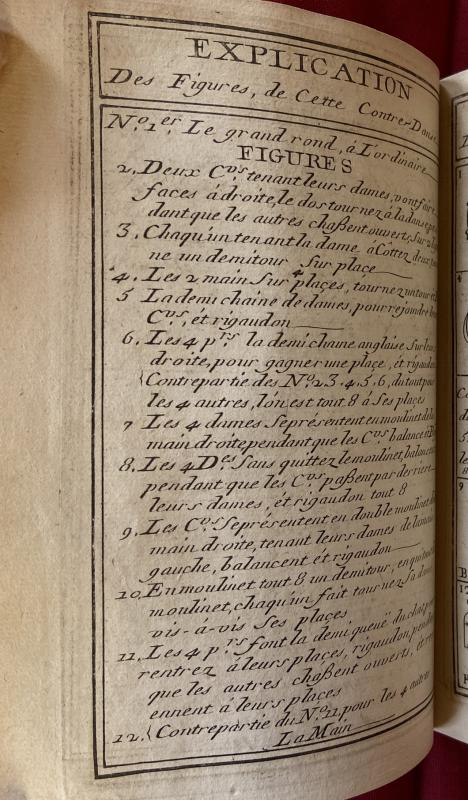 EXPLICATION
Des Figures, de Cette Contre-Danse
N.º 1.er Le grand rond, á L'ordinaire
FIGURES
2. Deux C.vs tenant leurs dames, vont faire
faces á droite, le dos tournez á la danse pen
dant que les autres chaßent ouverts, sur
3. Chaqu'un tenant la dame á Côttez
ne un demitour sur place
4. Les 2 main sur 4 plaçes, tournez un tour
5 La demi chaine de dames, pour rejoindre
C.vs, ét rigaudon
6. Les 4 p.rs la demi chaine anglaise sur
droite, pour gagner une plaçe, ét rigaudon
Contrepartie des N.º 2, 3, 4, 5, 6, du tout pour
les 4 autres, l'ón est tout 8 á Ses plaçes
7 Les 4 dames Seprésentent en moulinet de la
main droite pendant que les C.vs balancent
8. Les 4 D.es Sans quittez le moulinet, balancent
pendant que les C.vs paßent par derriere
leurs dames, ét rigaudon tout 8
9. Les C.vs Seprésentent en double moulinet
main droite, tenant leurs dames de la main
gauche, balancent ét rigaudon
10. En moulinet tout 8 un demitour, en quittant
moulinet, chaqu'un fait tournez Sa dame
vis-á-vis Ses plaçes
11. Les 4 p.rs font la demi queuë du chat
rentrez á leurs plaçes, rigaudon, pendant
que les autres chaßent ouverts, ét
ennent á leurs plaçes
12. Contrepartie du N.º 11 pour les 4 autres
La Main